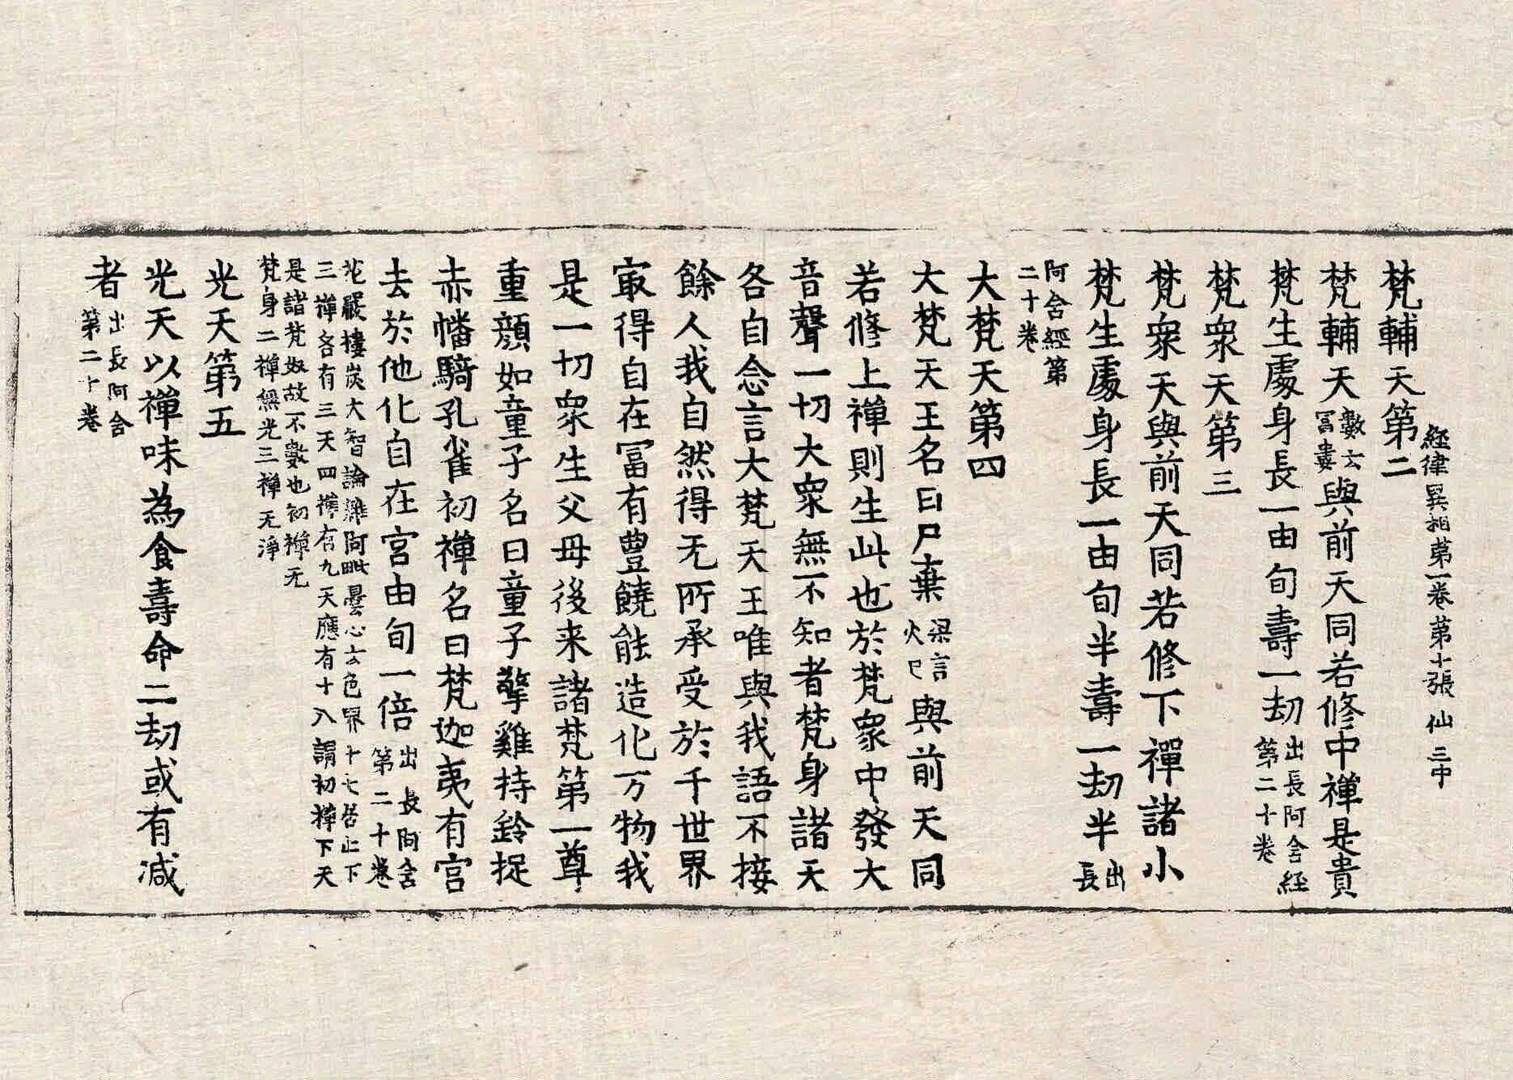 經律異相第一卷第十張 仙 三中
梵輔天第二
梵輔天數云富婁與前天同若修中禪是貴
梵生處身長一由旬壽一劫出長阿含經第二十卷
梵衆天第三
梵衆天與前天同若修下禪諸小
梵生處身長一由旬半壽一劫半出長
阿含經第二十卷
大梵天第四
大梵天王名曰尸棄梁言火巳與前天同
若修上禪則生此也於梵衆中發大
音聲一切大衆無不知者梵身諸天
各自念言大梵天王唯與我語不接
餘人我自然得无所承受於千世界
㝡得自在冨有豊饒能造化万物我
是一切衆生父母後来諸梵第一尊
重顔如童子名曰童子擎雞持鈴捉
赤幡騎孔雀初禪名曰梵迦夷有宮
去於他化自在宮由旬一倍出長阿含第二十卷
花嚴樓炭大智論雜阿毗曇心云色界十七居止下
三禪各有三天四禪有九天應有十八謂初禪下天
是諸梵奴故不數也初禪无
梵身二禪無光三禪无淨
光天第五
光天以禪味為食壽命二劫或有減
者出長阿含第二十卷